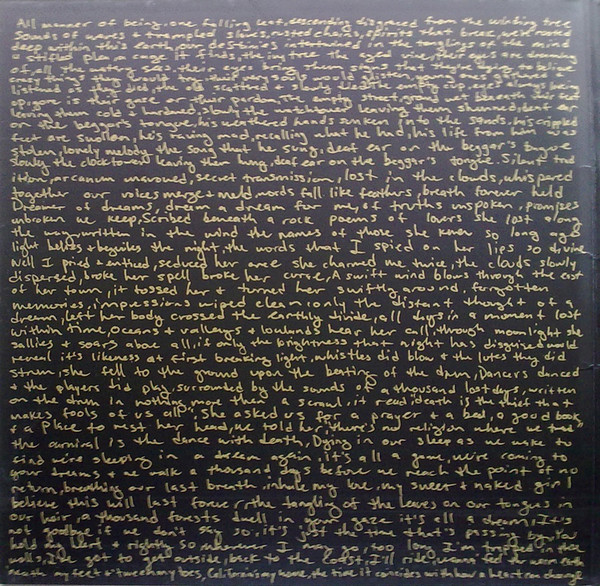 All manner of being, one falling leaf, descending disgraced from the winding tree
Sounds of waves + trampled shoes, rusted chaos, spirits that break, we're rooted
deep within this earth, our destinies intertwined in the tanglings of the mind
a stifled plan, a cage it finds, the ivy tree the aged vine, their eyes are
of, all the waters so their bring them signs that they're to believe
in, things they would try their very souls would glisten, young ones gathered +
listened as they died, the old scattered + slowly died the empty cup, ever
is their gaze or their pardon, The empty street, ground wet beneath their feet
leaving them cold + hardened, slowly the leaving them shunned, deaf ear
on the beggar's tongue, his weathered hands sunken into the sands, his crippled
feet are swollen, he's raving mad, recalling what he had, his life from him was
stolen, lonely melody the song that he sung, deaf ear on the beggar's tongue
slowly the clocktower leaving them hung, deaf ear on the beggar's tongue. Silent trad
ition, arcanum unavowed, secret transmission, lost in the clouds, whispered
together our voices merge + meld, words fall like feathers, breath forever held
Dreamer of dreams, dream a dream for me, of truths unspoken, promises
unbroken we keep, Scribed beneath a rock poems of lovers she lost along
the way, written in the wind the names of those she knew so long ago +
light betides + beguiles the night, the words that I spied on her lips so divine
Well I pried + enticed, seduced her once she charmed me twice, the clouds slowly
dispersed, broke her spell broke her curse, A swift wind blows through the east
of her town, it tossed her + turned her swiftly around, forgotten
memories, impressions wiped clean, only the distant thought of a
dream, left her body crossed the earthly divide, all days in a moment lost
within time, oceans + valleys + lowlands hear her call, through moonlight she
sallies + soars above all, if only the brightness that night has disguised would
reveal it's likeness at first breaking light, whistles did blow + the lutes they did
strum, she fell to the ground upon the beating of the drum, Dancers danced
+ the players did play, surrounded by the sounds of a thousand lost days, written
on the drum in nothing more then a scrawl, it read "death is the thief that
makes fools of us all", She asked us for a prayer + a bed, a good book
+ a Place to rest her head, we told her "there's no religion where we tread"
the carnival is the dance with death, Dying in our sleep as we wake to
find we're sleeping in a dream again, it's all a game, we're coming to
your dreams + we walk a thousand days before we reach the point of no
return, breathing our last breath inhale my love, my sweet + naked girl I
believe this will last forever, the tangling of the leaves on our tongues in
our hair, a thousand forests dwell in your gaze it's all a dream, It's
no goodbye if we don't say so, it's just the time that's passing by, You
hold my left + right so wherever I may go, too long I'm trapped in these
walls, I've got to get outside, back to the coast, I'll ride,
my feet + 'tween my toes, California's my home, the tide it coincides with how a heart